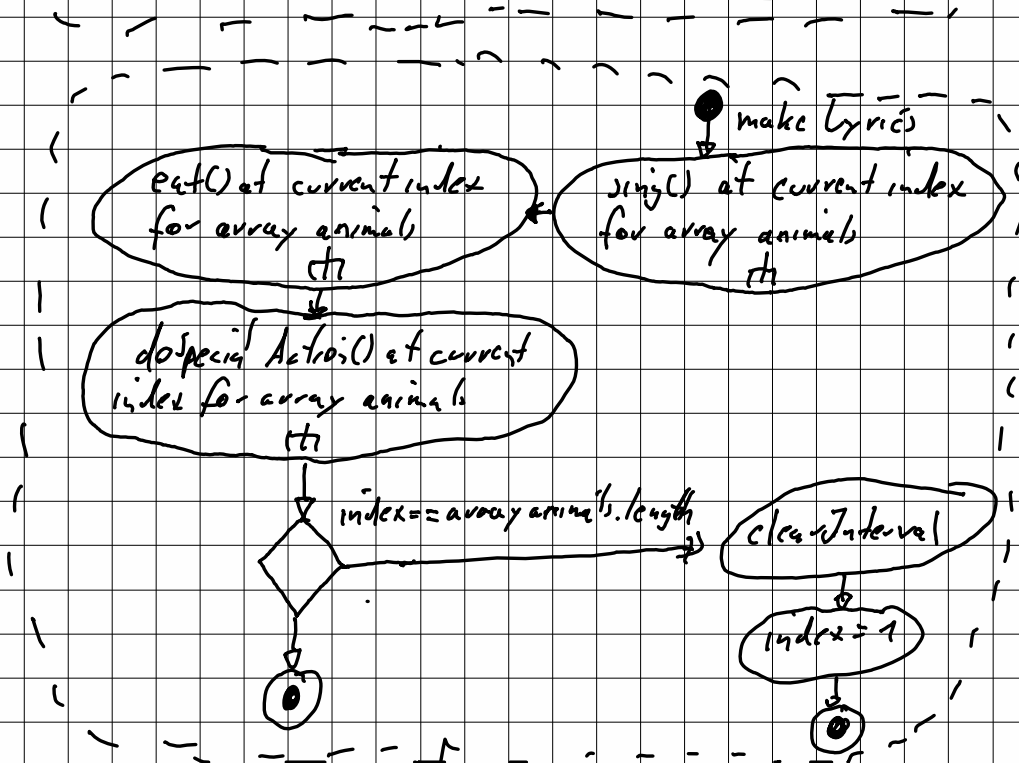 make Lyrics
eat() at current index
for array animals
sing() at current index
for array animals
doSpecial Action() at current
index for array animals
index==array animals.length
clearInterval
index = 1